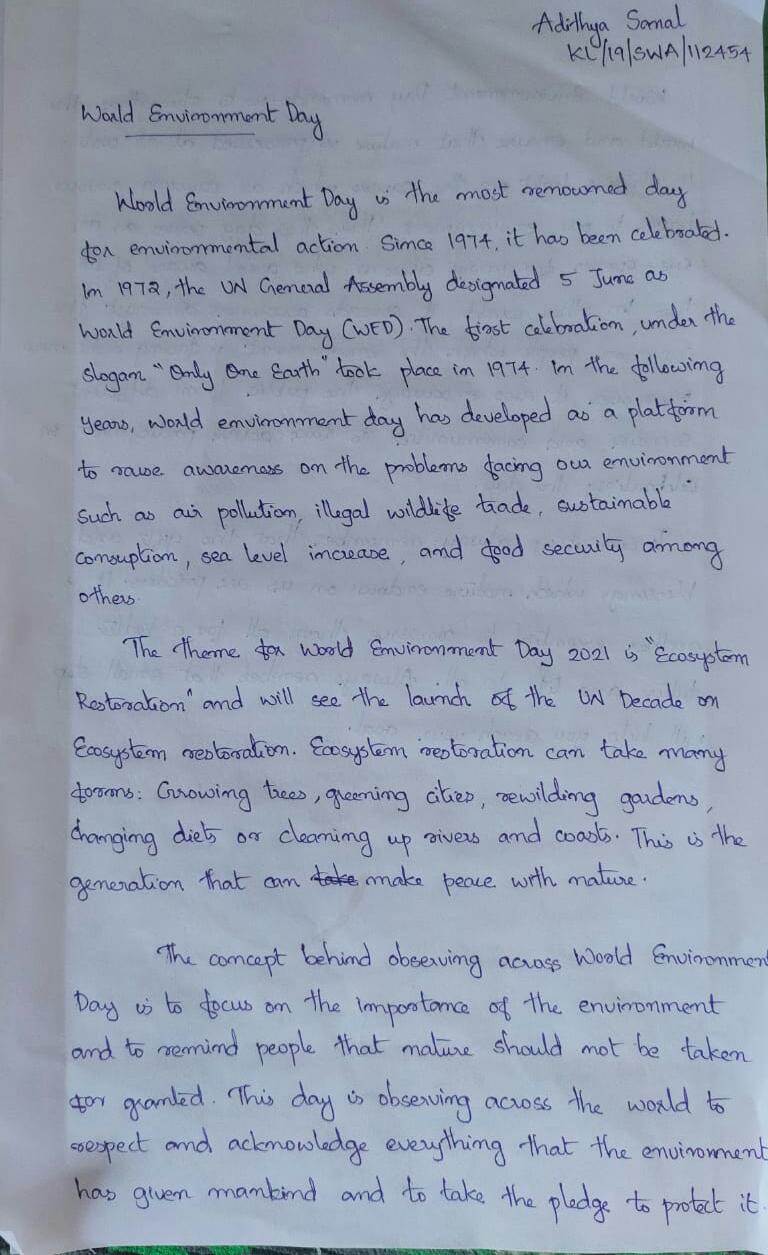 Adithya Sanal
KL/19/SWA/112454
World Environment Day
World Environment Day is the most renowned day
for environmental action. Since 1974, it has been celebrated.
In 1972, the UN General Assembly designated 5 June as
World Environment Day (WED). The first celebration, under the
slogan "Only One Earth" took place in 1974. In the following
years, World environment day has developed as a platform
to raise awareness on the problems facing our environment
such as air pollution, illegal wildlife trade, sustainable
consuption, sea level increase, and food security among
others.
The theme for World Environment Day 2021 is "Ecosystem
Restoration" and will see the launch of the UN Decade on
Ecosystem restoration. Ecosystem restoration can take many
forms: Growing trees, greening cities, rewilding gardens,
changing diets or cleaning up rivers and coasts. This is the
generation that can take make peace with nature.
The concept behind observing across World Environmen
Day is to focus on the importance of the environment
and to remind people that nature should not be taken
for granted. This day is observing across the world to
respect and acknowledge everything that the environment
has given mankind and to take the pledge to protect it.